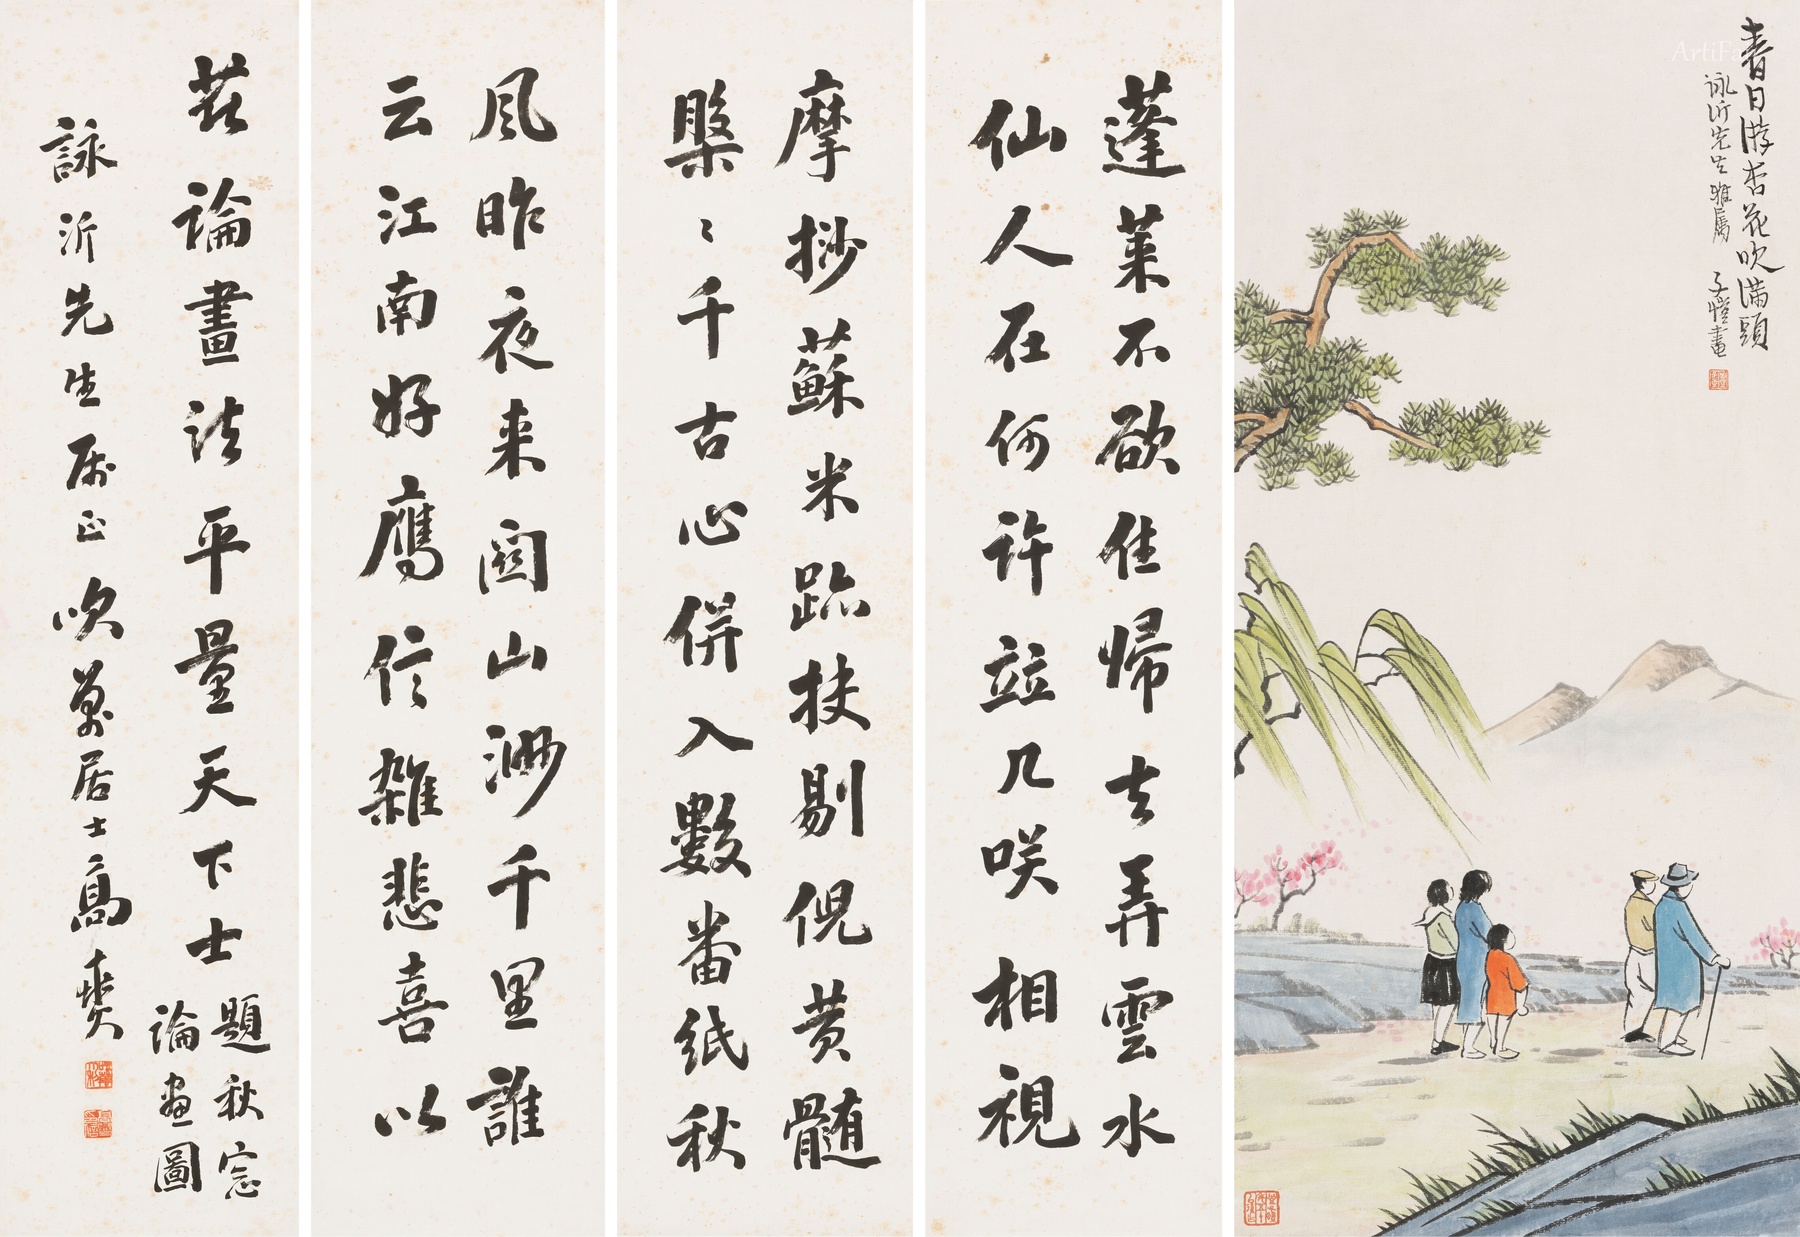 春日游杏花吹滿頭
詠沂先生雅屬 子愷畫
蓬萊不欲住歸去弄雲水
仙人在何許竝几咲相視
摩挱蘇米跡抉剔倪黄髓
槩〻千古心併入數番紙秋
風昨夜来關山渺千里誰
云江南好鴈信雜悲喜以
茲論畫法平量天下士
題秋窓
論畫圖
詠沂先生属正 吹萬居士高燮